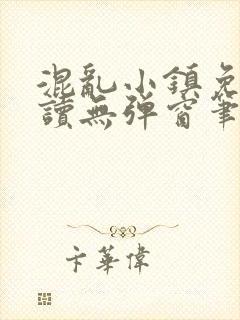 混亂小鎮免
讀無彈窗筆
卞華偉